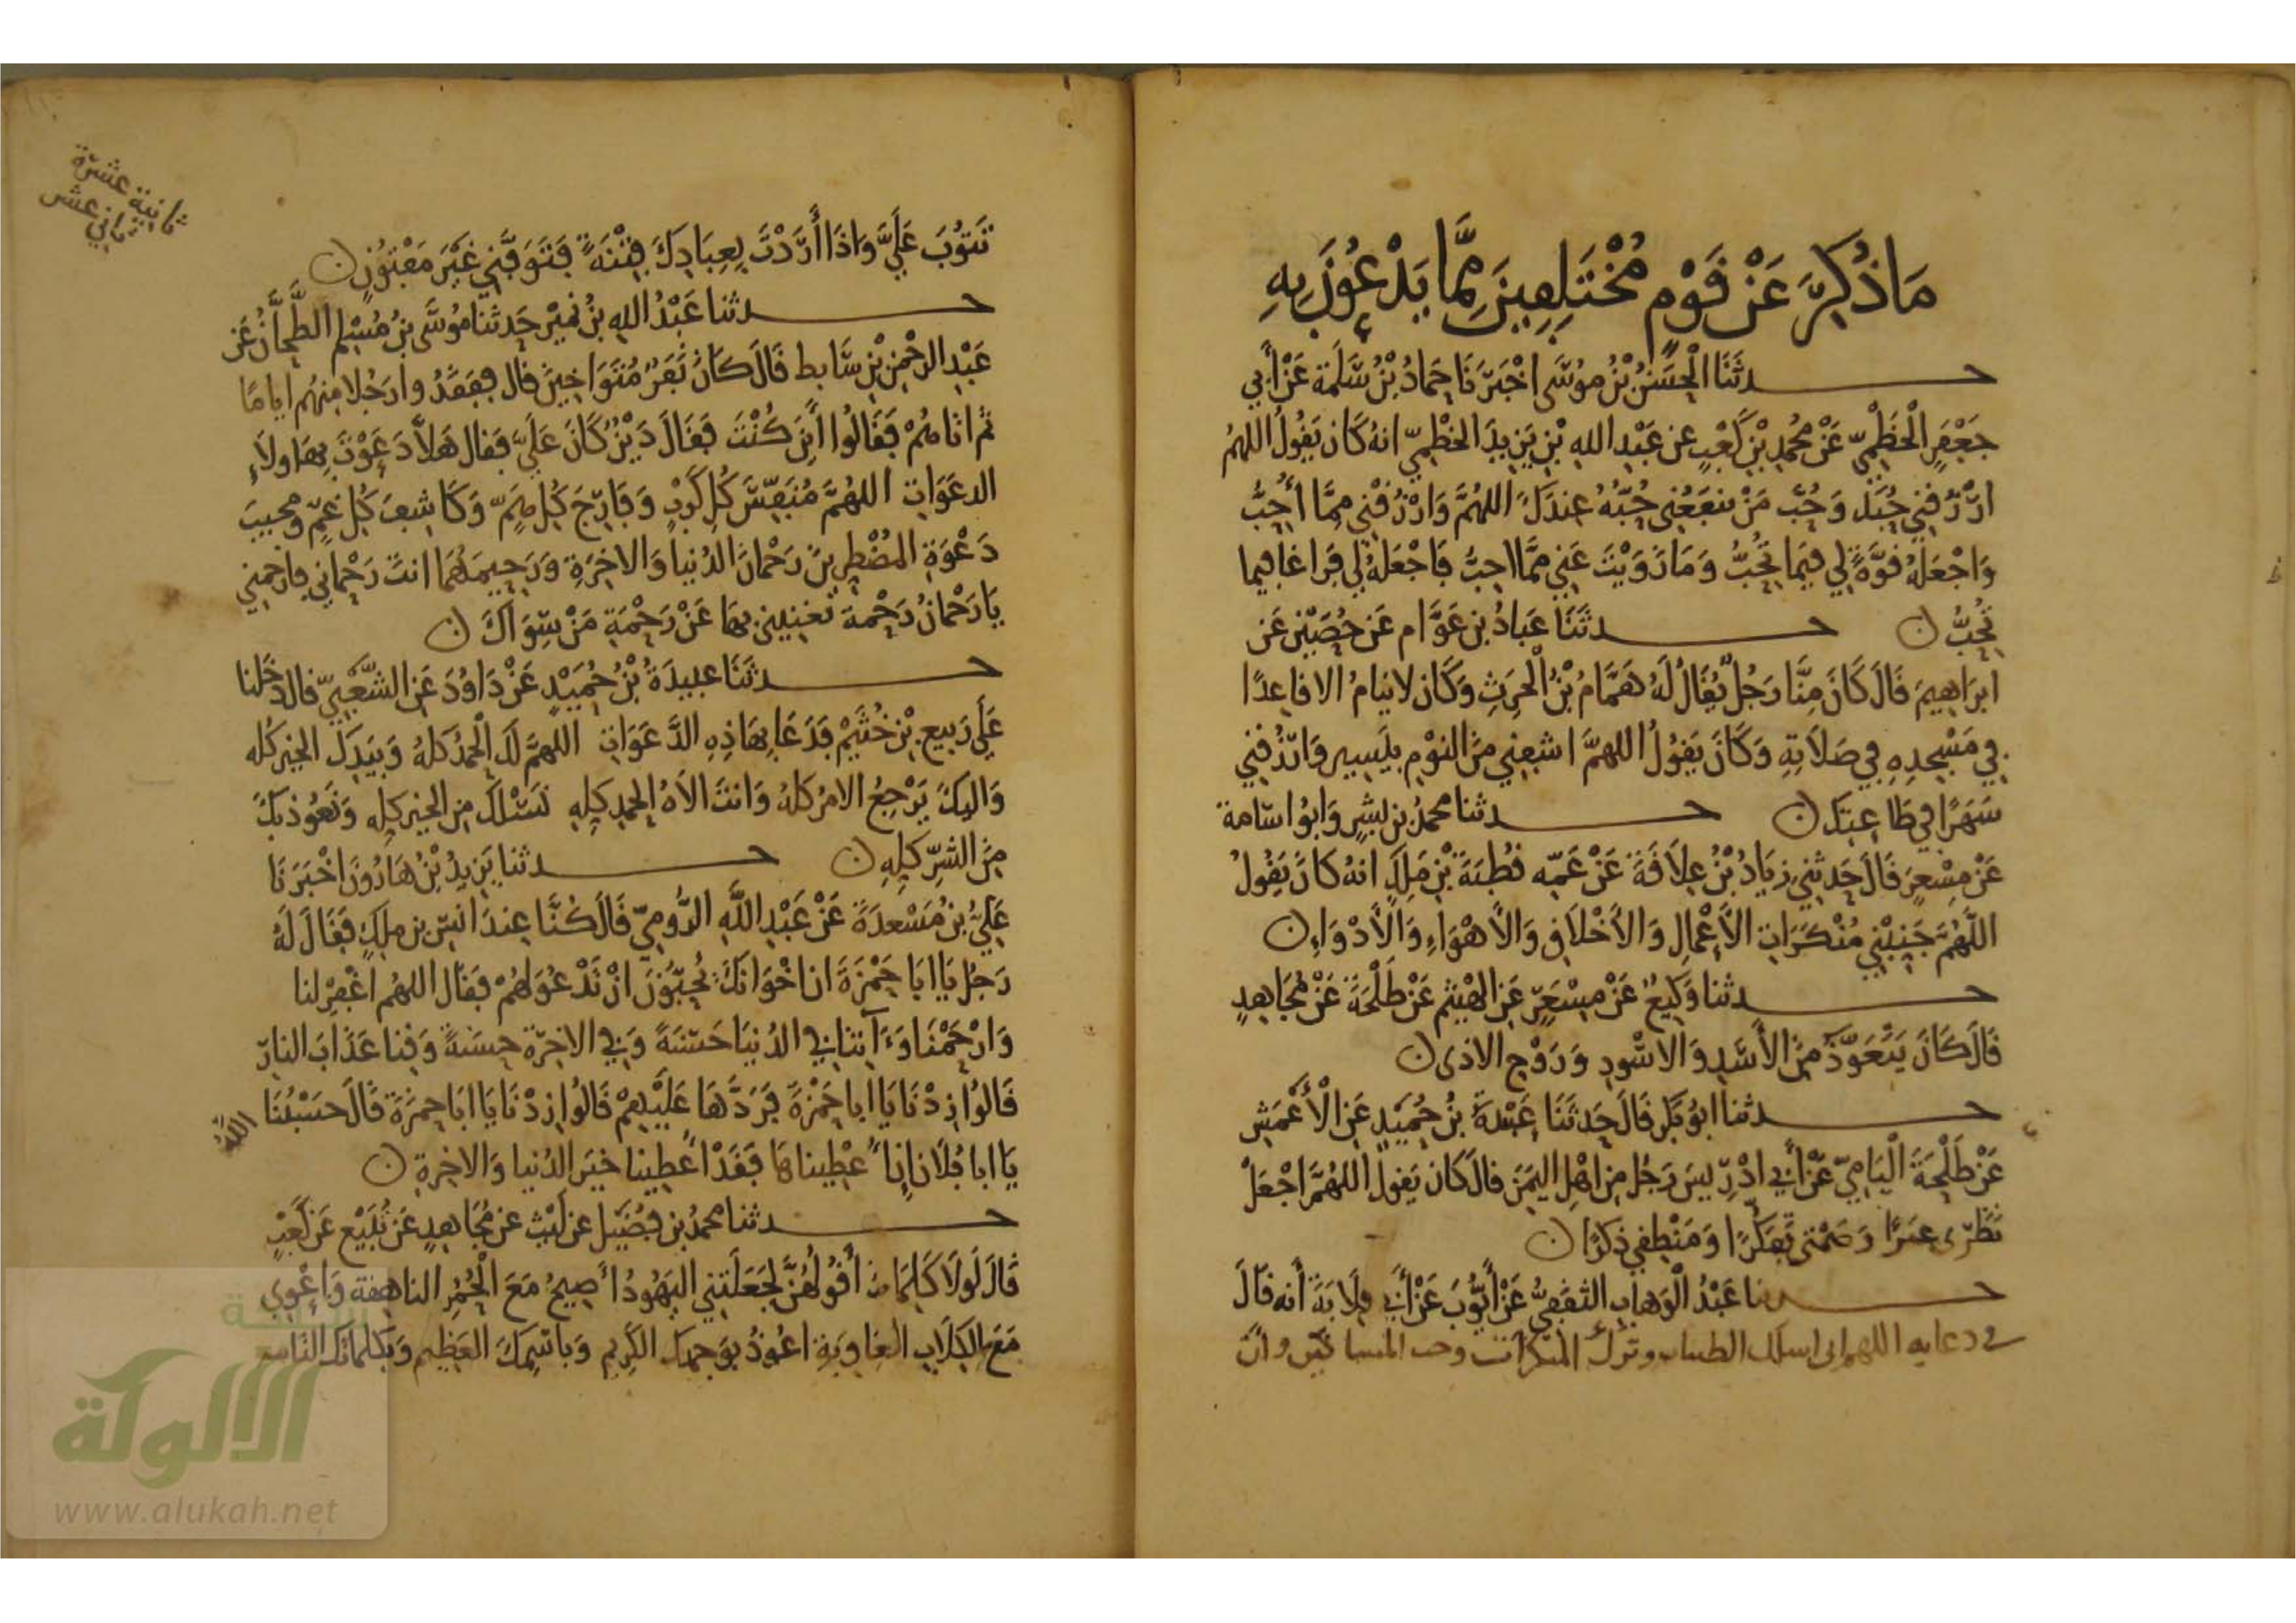 مَا ذُكِرَ عَنْ قَوْمٍ مُخْتَلِفِينَ مِمَّا يَدْعُونَ بِهِ
حدثَنَا الْحَسَنُ بْنُ مُوسَى اخْبَرَنَا حَمادُ بْنُ سَلَمَة عَنْ أَبي
جَعْفَرٍ الْخَطْمِيّ عَنْ مُحمدِ بْنِ كَعْبٍ عن عَبْدِ اللهِ بْنِ يَزِيدَ الخطْمِيّ انهُ كَان يَقُولُ اللهُم
ارْزُقْنِي حُبَّكَ وَحُبَّ مَنْ ينفَعُنِي حُبُّهُ عِندَكَ اللهُمَّ وَارْزُقْنِي مِمَّا أُحِبُّ
وَاجْعَلهُ قُوَّةً لِي فِيمَا تُحِبُّ وَمَا زَوَيْتَ عَنِي مِمَّا احِبُّ فَاجْعَلهُ لي فَرَاغا فِيما
تُحِبُّ ن حدثَنَا عَبَادُ بن عَوَّام عَن حُصَيْنٍ عَن
ابرَاهِيمَ قَالَ كَانَ مِنَّا رَجُل يُقَالُ لَهُ هَمَّامُ بْنُ الْحرِثِ وَكَان لا ينامُ الا قاعِدًا
في مَسْجِدِهِ فِي صَلَاتِهِ وَكَانَ يَقُولُ اللهمَّ اشفِنِي مِنَ النوْمِ بيَسِيرٍ وَارزُقْنِي
سَهَرًا في طَاعتِكَ ن حدثنا محمدُ بن بِشْرٍ وَابُو اسامة
عَنْ مِسْعَرٍ قَالَ حَدثَنِي زيَادُ بْنُ عِلَاقَةَ عَنْ عَمّه قُطْبَةَ بْنِ مَلِكٍ انهُ كَانَ يَقُولُ
اللَّهُمَّ جَنِّبْنِي مُنْكَرَاتِ الاَعْمالِ وَالاَخْلَاقِ وَالاَهْوَاءِ وَالاَدْوَاءِ ن
حدثنا وَكِيعٌ عَنْ مِسْعَرٍ عَنِ الهَيْثَم عَنْ طَلْحَةَ عَنْ مُجَاهِدٍ
قَالَ كَانَ يَتَعَوَّذُ مِنَ الأَسَدِ وَالاسْوَدِ وَرَوْحِ الاذى ن
حدثنا ابُو بَكرٍ قَالَ حَدثَنَا عَبْدةُ بنُ حُمَيْدٍ عَنِ الْأَعْمَشِ
عَنْ طَلْحَةَ الْيَامِيّ عَنْ أَبِي ادْرِيسَ رَجُلٍ مِن اهْلِ اليَمَنِ قالَ كان يَقولُ اللهُمَّ اجْعَلْ
نَظَرِي عِبَرًا وَصَمْتِي تَفَكُّرًا وَمَنْطِقِي ذكرًا ن
حدثنا عَبْدُ الْوَهابِ الثقَفِيُّ عَنْ أَيُّوبَ عَنْ أَبي قِلَابَةَ أنه قَالَ
في دعايه اللهم اني اسلك الطيبات وترك المنكرات وحب المساكين وان
ثانية عشرة
ثاني عشر
تَتُوبَ عَلَيَّ وَاذَا أَرَدْتَ بِعِبَادِكَ فِتْنَةً فَتَوَفَّنِي غَيْرَ مَفْتُونٍ ن
حدثنا عَبْدُ اللهِ بنُ نمَيْرٍ حَدثنا مُوسَى بنُ مُسْلِمٍ الطَّحَّانُ عَن
عَبْدِ الرحْمنِ بْنِ سَابط قَالَ كَانَ نَفَرٌ مُتَوَاخِينَ قال فَفَقَدُوا رَجُلا مِنهُم اياما
ثم اتَاهُمْ فَقَالُوا أَينَ كُنْتَ فَقَالَ دَيْنٌ كَانَ عَلَيَّ فَقال هَلاَّ دَعَوْتَ بِهَاولَاءِ
الدعَوَاتِ اللهُمَّ مُنَفِّسَ كُلِ كَرْبٍ وَفَارِجَ كُلِ هَمٍّ وَكَاشِفَ كُلِ غَمٍّ وَمُجِيبَ
دَعْوَةِ المُضْطَرِينَ رَحْمَانَ الدُنيا وَالاخِرَةِ وَرَحِيمَهُمَا انتَ رَحْمَانِي فارحَمني
يَا رَحْمَانُ رَحْمةً تُغنِينِي بهَا عَنْ رَحْمَةِ مَنْ سِوَاكَ ن
حدثَنَا عبيدَةُ بْنُ حُمَيْدٍ عَنْ دَاوُدَ عَنِ الشَّعْبِيّ قالَ دَخَلنا
عَلَى رَبيعِ بْنِ خُثَيْمٍ فَدَعَا بِهَاذِهِ الدَّعَوَاتِ اللهمَّ لَكَ الْحمْدُ كلهُ وَبِيَدِكَ الخير كله
وَاليكَ يَرْجِعُ الامرُ كلهُ وَانتَ الاَهُ الحمدِ كلِهِ نَسَلُكَ مِن الخيرِ كلِه وَنَعُوذ بكَ
مِنَ الشرِّ كلِهِ ن حدثنا يَزِيدُ بْنُ هَارُونَ اخْبَرَنَا
عَلِيُّ بنُ مَسْعدَةَ عَنْ عَبْدِ اللَّهِ الرُّومِيّ قَالَ كُنَّا عِندَ انَسِ بن مَلِكٍ فَقَالَ لَهُ
رَجُلٌ يَا ابَا حَمْزَةَ ان اخْوَانَكَ يُحِبُّونَ انْ تَدْعُوَ لهُمْ فقَال اللهُم اغْفِرْ لنا
وَارْحَمْنَا وَءَاتِنا فِي الدُنيَا حَسَنَةً وَفِي الاخِرَةِ حسَنَةً وَقِنا عَذَابَ النارِ
قَالُوا زِدْنَا يَا ابا حَمْزَةَ فَرَدَّهَا عَلَيْهِمْ قَالُوا زِدْنَا يَا ابَا حمزَةَ قَالَ حَسْبُنَا اللهُ
يَا ابا فُلَان انِ اُعْطِيناهَا فَقَدْ اُعْطِينا خَيْرَ الدُنيا وَالاخِرةِ ن
حدثنا محمدُ بن فُضَيْل عن لَيْث عن مُجَاهِدٍ عَن تُبَيْعٍ عَن كَعْبٍ
قَالَ لَوْلَا كَلِمَات أَقُولُهُنَّ لَجَعَلَتْنِي اليَهُودُ اَصِيحُ مَعَ الْحُمُرِ الناهقة وَاَعْوِي
مَعَ الكِلَابِ العَاوِيَةِ اعُوذُ بوَجهِكَ الكرِيمِ وَبِاسْمِكَ العَظِيمِ وَبِكلمَاتِكَ التامة
شبكة
الألوكة
www.alukah.net